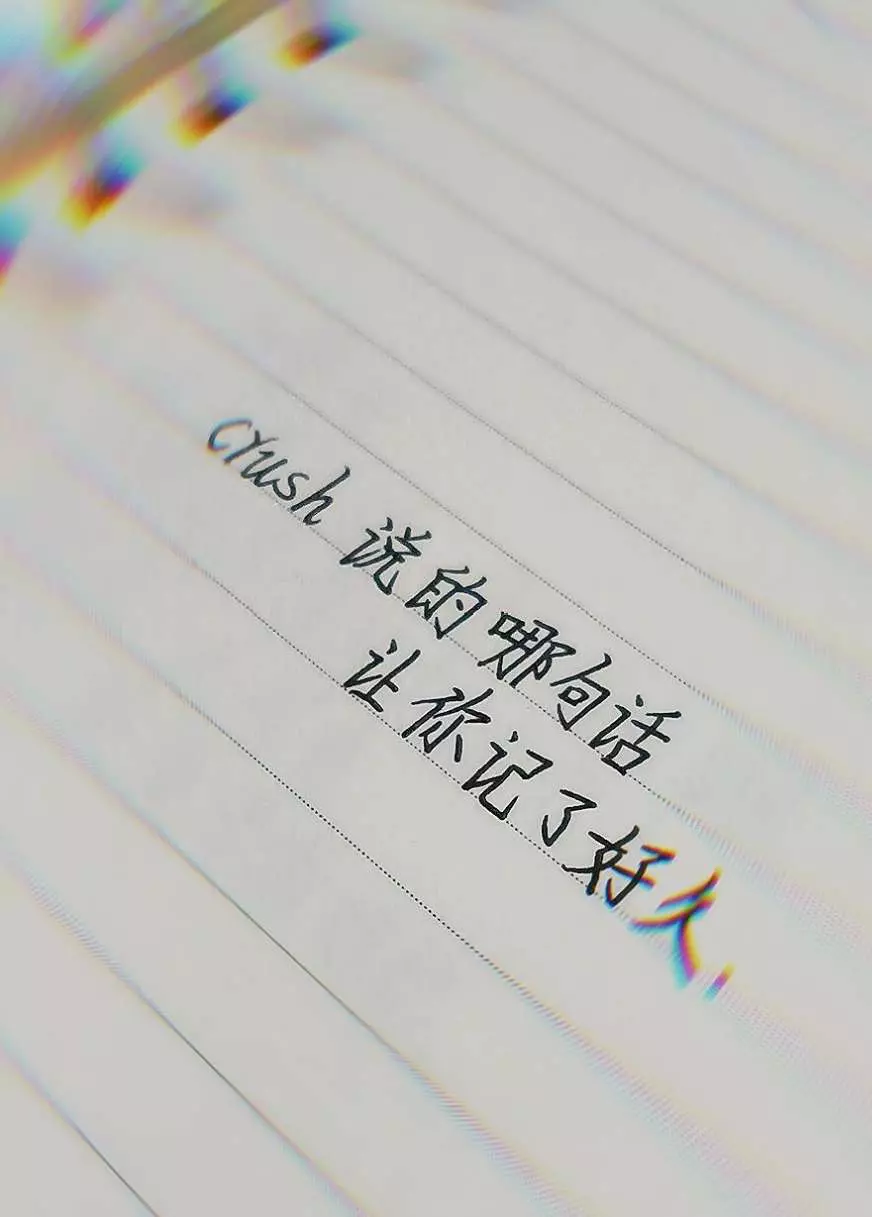 crush 说的哪句话
让你记了好久,